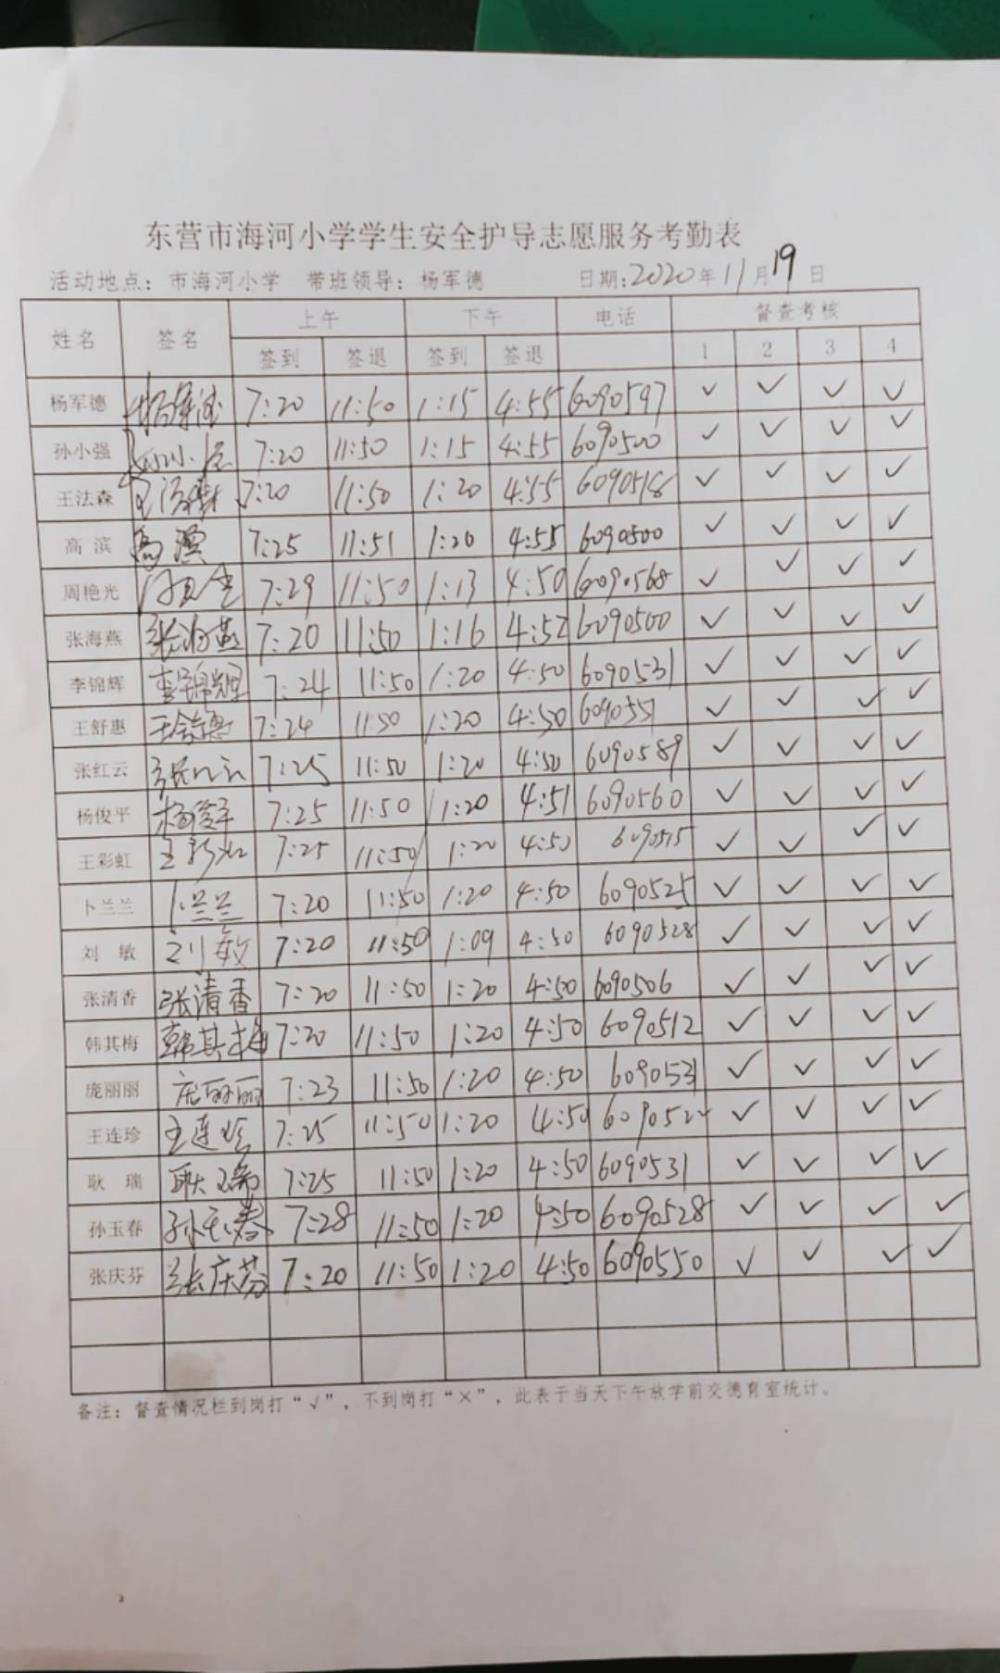 东营市海河小学学生安全护导志愿服务考勤表
活动地点：市海河小学 带班领导：杨军德 日期:2020年11月19日
姓名 签名 上午 下午 电话 督查考核
签到 签退 签到 签退 1 2 3 4
杨军德 杨军德 7:20 11:50 1:15 4:55 6090597 ✓ ✓ ✓ ✓
孙小强 孙小强 7:20 11:50 1:15 4:55 6090500 ✓ ✓ ✓ ✓
王法森 王法森 7:20 11:50 1:20 4:55 6090518 ✓ ✓ ✓ ✓
高 滨 高滨 7:25 11:51 1:20 4:55 6090500 ✓ ✓ ✓ ✓
周艳光 7:29 11:50 1:13 4:50 6090568 ✓ ✓ ✓ ✓
张海燕 张海燕 7:20 11:50 1:16 4:52 6090500 ✓ ✓ ✓ ✓
李锦辉 李锦辉 7:24 11:50 1:20 4:50 6090531 ✓ ✓ ✓ ✓
王舒惠 王舒惠 7:24 11:50 1:20 4:50 6090551 ✓ ✓ ✓ ✓
张红云 张红云 7:25 11:50 1:20 4:50 6090589 ✓ ✓ ✓ ✓
杨俊平 杨俊平 7:25 11:50 1:20 4:51 6090560 ✓ ✓ ✓ ✓
王彩虹 王彩虹 7:25 11:50 1:20 4:50 6090515 ✓ ✓ ✓ ✓
卜兰兰 卜兰兰 7:20 11:50 1:20 4:50 6090525 ✓ ✓ ✓ ✓
刘 敏 刘敏 7:20 11:50 1:09 4:50 6090528 ✓ ✓ ✓ ✓
张清香 张清香 7:20 11:50 1:20 4:50 6090506 ✓ ✓ ✓ ✓
韩其梅 韩其梅 7:20 11:50 1:20 4:50 6090512 ✓ ✓ ✓ ✓
庞丽丽 庞丽丽 7:23 11:50 1:20 4:50 6090531 ✓ ✓ ✓ ✓
王连珍 王连珍 7:25 11:50 1:20 4:50 ✓ ✓ ✓ ✓
耿 瑞 耿瑞 7:25 11:50 1:20 4:50 6090531 ✓ ✓ ✓ ✓
孙玉春 孙玉春 7:28 11:50 1:20 4:50 6090528 ✓ ✓ ✓ ✓
张庆芬 张庆芬 7:20 11:50 1:20 4:50 6090550 ✓ ✓ ✓ ✓
备注：督查情况栏到岗打“√”，不到岗打“×”，此表于当天下午放学前交德育室统计。